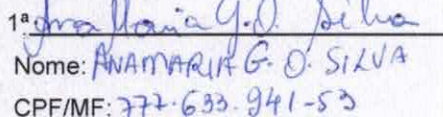 1ª Ana Maria G.O. Silva
Nome: ANAMARIA G. O. SILVA
CPF/MF: 777.633.941-53